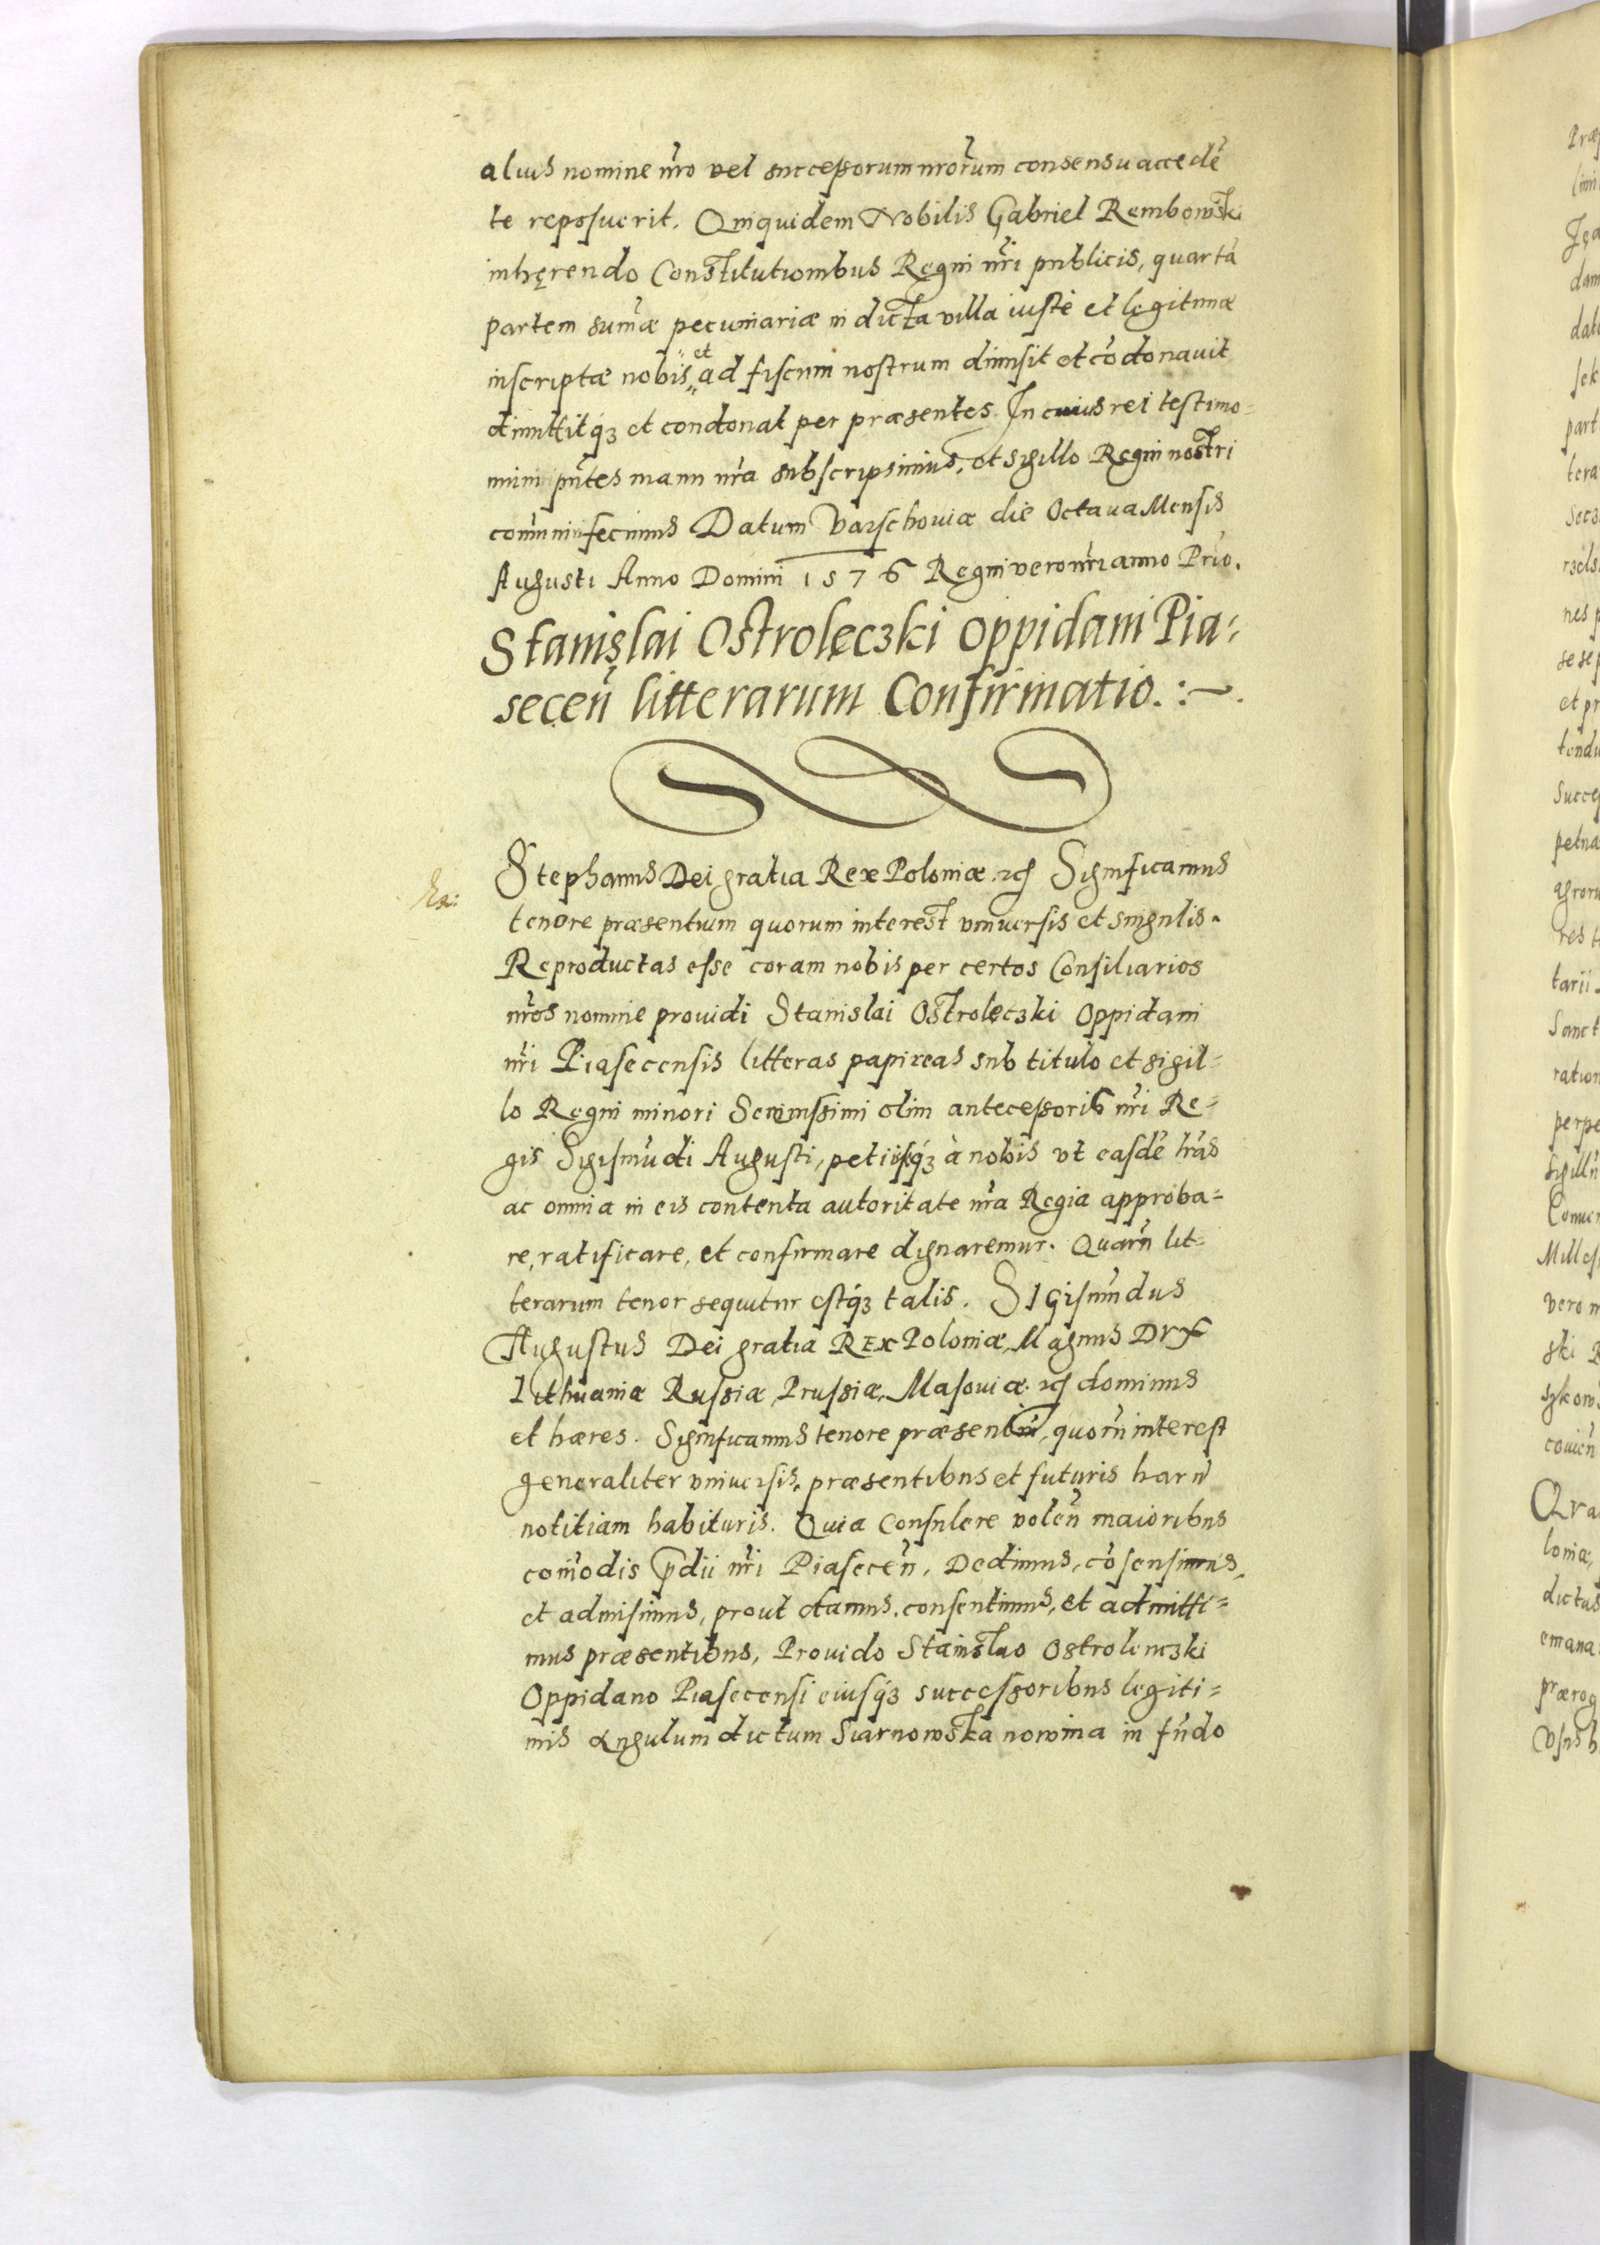 alius nomine nr̃o vel successorum nrorũm consensu accedẽ
te reposuerit. Quiquidem Nobilis Gabriel Rembowski
inhęrendo Constitutionibus Regni nr̃i publicis, quartã
partem sum̃æ pecuniariæ in dicta villa iustè et legitimæ
inscriptæ nobis et ad fiscum nostrum dimisit et cõdonavit
dimittitq́ꝫ et condonat per præsentes. In cuius rei testimo=
nium pñtes manu nr̃a subscripsimus, et sigillo Regni nostri
com̃uniri fecimus Datum Varschoviæ die Octava Mensis
Augusti Anno Domini 1576 Regni vero nr̃i anno Prio.
Stanislai Ostrolęczki Oppidani Pia=
seceñ litterarum Confirmatio.:~.
Stephanus Dei gratia Rex Poloniæ ꝛc̃ Significamus
tenore præsentium quorum interest universis et singulis.
Reproductas esse coram nobis per certos Consiliarios
nr̃os nomine providi Stanislai Ostrolęczki Oppidani
nr̃i Piasecensis litteras papireas sub titulo et sigil=
lo Regni minori Serenissimi olim antecessoris nr̃i Re=
gis Sigismũdi Augusti, petijsq́ꝫ à nobis vt easdẽ lrãs
ac omnia in eis contenta autoritate nr̃a Regia approba=
re, ratificare, et confirmare dignaremur. Quarũ lit=
terarum tenor sequitur estq́ꝫ talis. Sigismũndus
Augustus Dei gratia REx Poloniæ, Magnus Dvx
Lithuaniæ Russiæ, Prussiæ, Masoviæ ꝛc̃ dominus
et hæres. Significamus tenore præsentiũ, quorũ interest
generaliter vniversis, præsentibus et futuris harũ
notitiam habituris. Quia Consulere voleñ maioribus
com̃odis p̱dii nr̃i Piaseceñ, Dedimus, cõsensimus,
et admisimus, prout damus, consentimus, et admitti=
mus præsentibus, Provido Stanislao Ostrolenczki
Oppidano Piasecensi eiusq́ꝫ successoribus legiti=
mis Angulum dictum Siarnowska nowina in fũdo